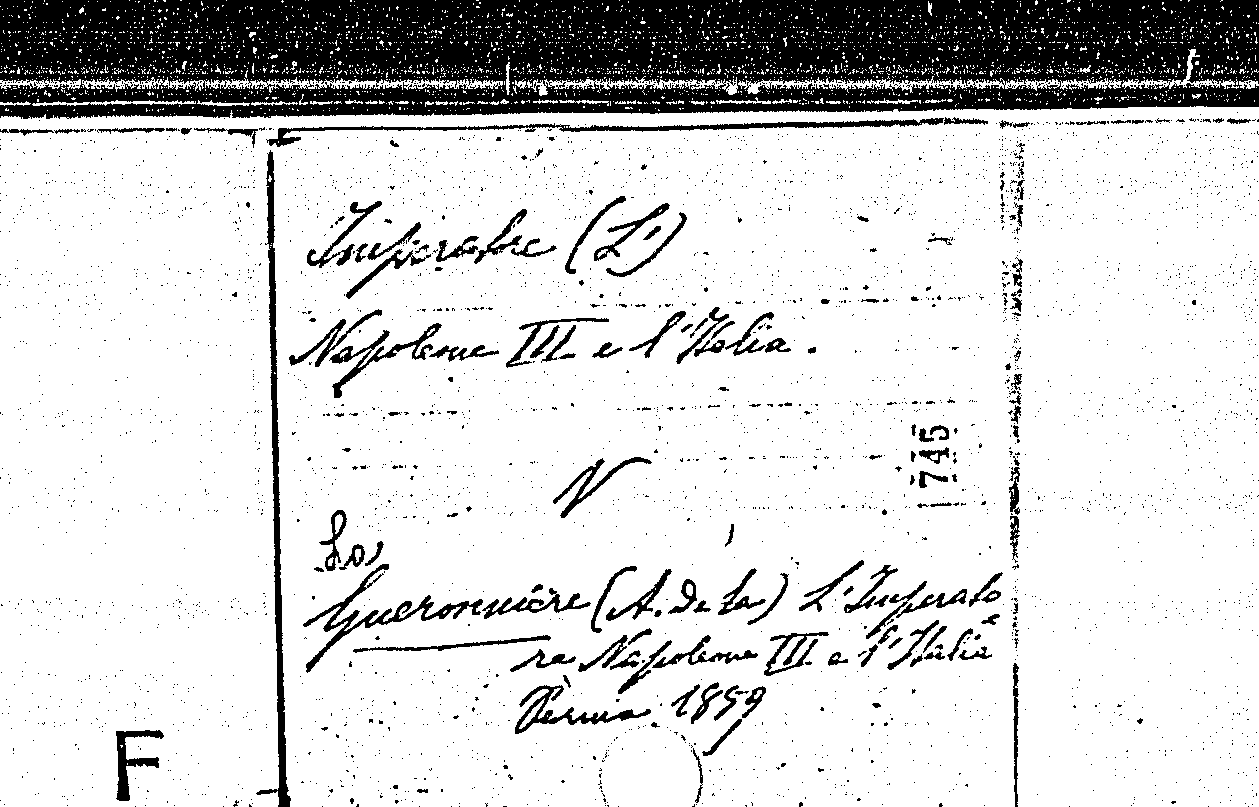 Imperatore (L')
Napoleone III e l'Italia.
1745
V
La
Gueronnière (A. De La) L'Imperato
re Napoleone III e l'Italia
1859
F